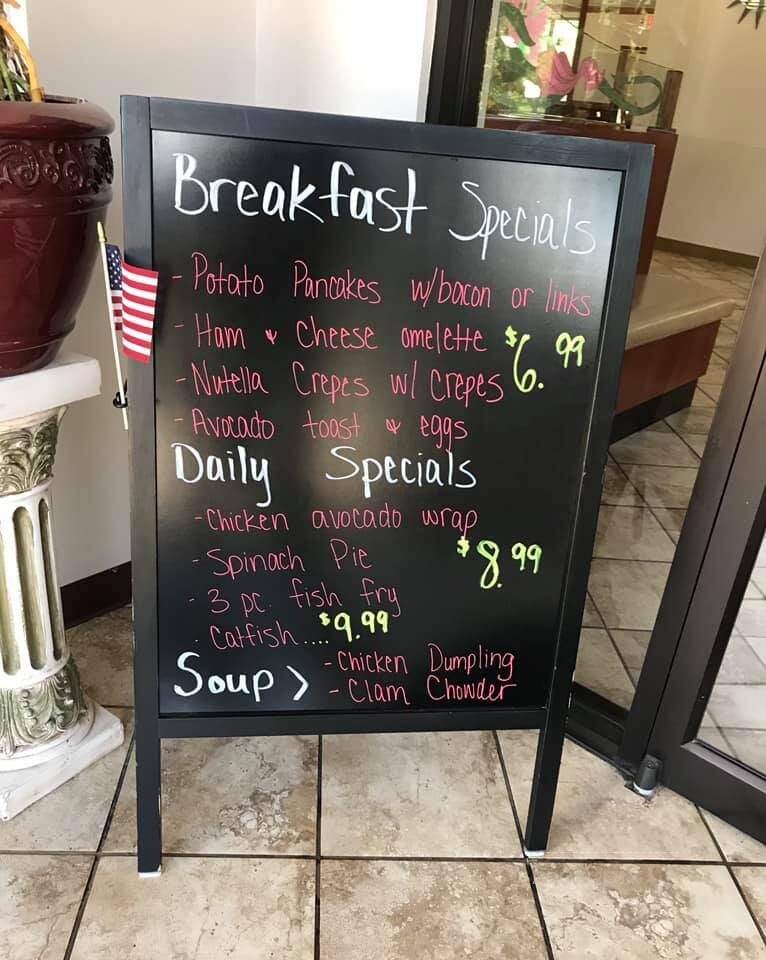 Breakfast Specials
- Potato Pancakes w/bacon or links
- Ham & Cheese omelette $6.99
- Nutella Crepes w/ Crepes
- Avocado toast & eggs
Daily Specials
- Chicken avocado wrap
- Spinach Pie $8.99
- 3 pc. fish fry
- Catfish.... $9.99
Soup > - Chicken Dumpling
- Clam Chowder